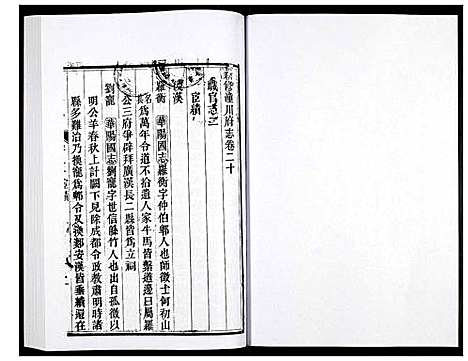 新修潼川府志卷二十
職官志三
宦績一
後漢
羅衡 華陽國志羅衡字仲伯郪人也師徵士何幼山
名爲萬年令道不拾遺人家牛馬皆繫道邊曰屬羅
公三府爭辟拜廣漢長二縣皆爲立祠
劉寵 華陽國志劉寵字世信緜竹人也出自孤微以
明公羊春秋上計闕下見除成都令政教肅明時諸
縣多難治乃換寵爲郫令又換郪安漢皆垂績還在